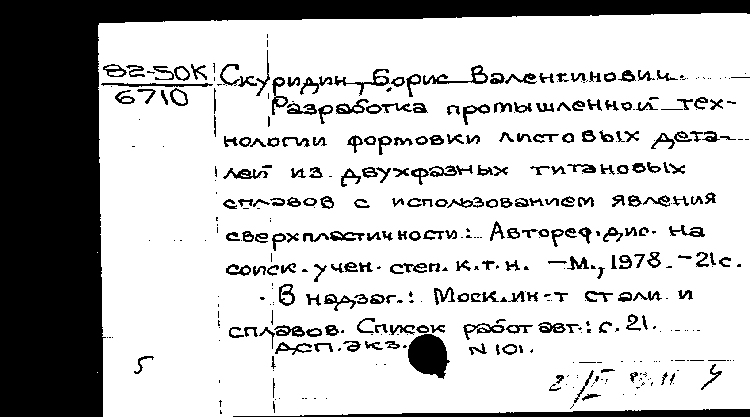 82-50К
6710
Скуридин, Борис Валентинович.
Разработка промышленной тех-
нологии формовки листовых дета-
лей из двухфазных титановых
сплавов с использованием явления
сверхпластичности: Автореф. дис. на
соиск. учен. степ. к.т.н. - М., 1978. - 21 с.
В надзаг.: Моск. ин-т стали и
сплавов. Список работ авт.: с. 21.
ДСП. экз. N 101.
5